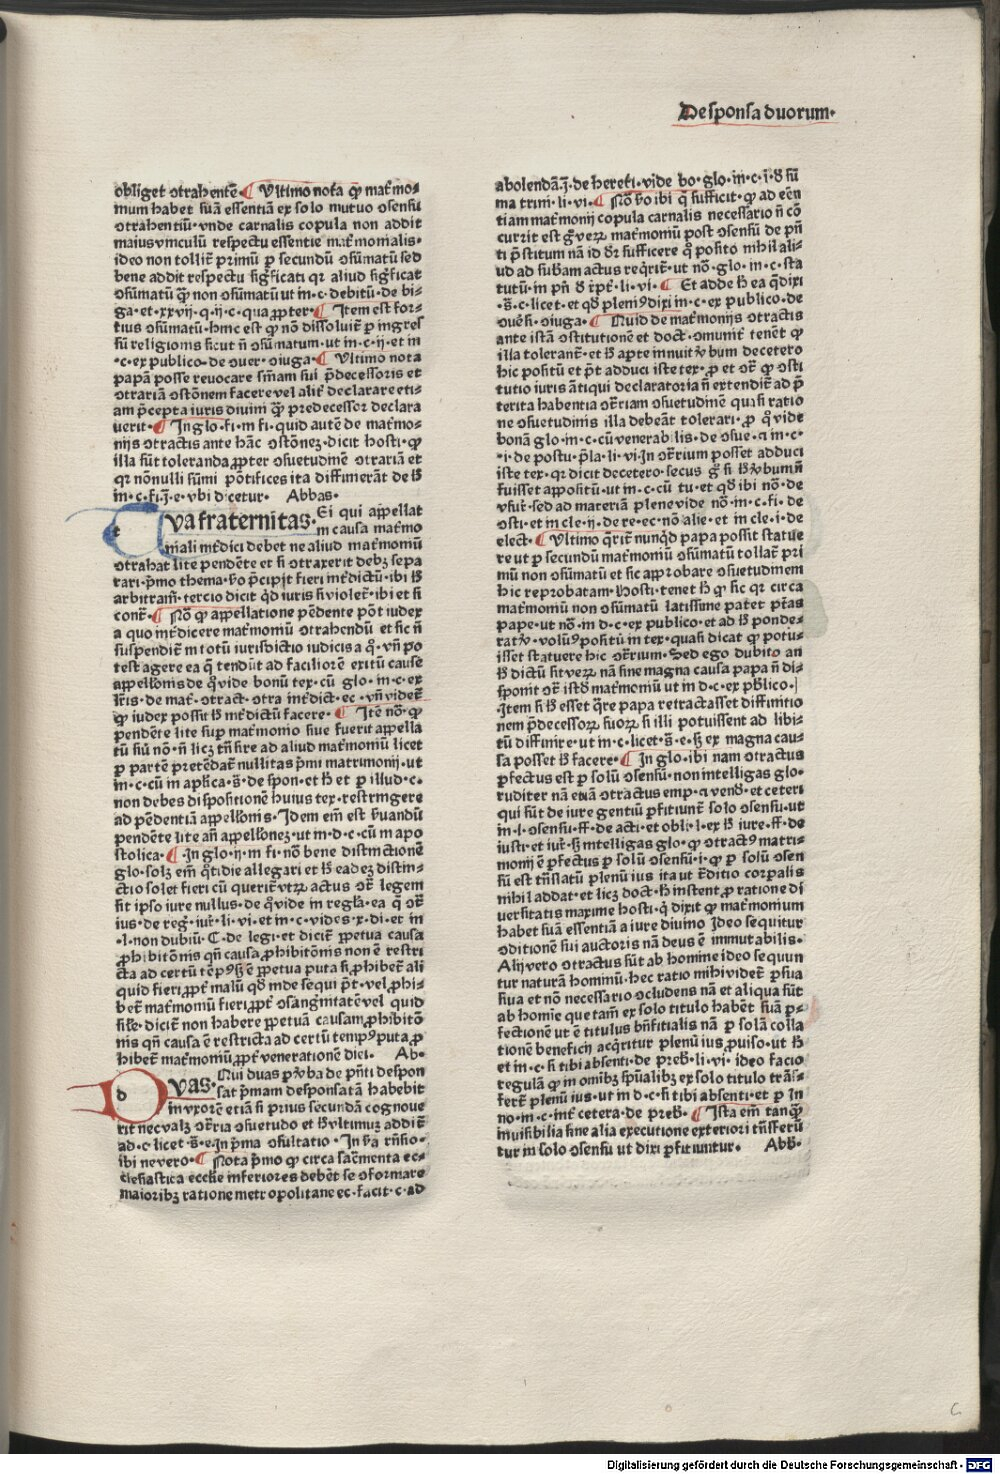 De sponsa duorum·
obliget ɔtrahentē· ¶ Vltimo nota ꝙ mat̄mo⸗
nium habet suā essentiā ex solo mutuo ɔsensu
ɔtrahentiū· vnde carnalis copula non addit
maius vinculū respectu essentie mat̄monialis·
ideo non tollit̄ primū ꝑ secundū ɔsumatū sed
bene addit respectu sigficati qr aliud sigficat
ɔsumatū ꝙ̄ non ɔsumatū ut in·c·debitū·de bi⸗
ga·et·xxvij·q·ij·c·qua ꝓpter· ¶ Item est for⸗
tius ɔsumatū·hinc est ꝙ nō dissoluit̄ ꝑ ingres
sū religionis sicut ñ ɔsumatum·ut in·c·ij·et in
·c·ex publico·de ɔuer·ɔiuga· ¶ Vltimo nota
papā posse reuocare sn̄iam sui p̄decessoris et
ɔtrariā ɔstōnem facere vel alit̄ declarare eti⸗
am p̄cepta iuris diuini ꝙ̄ predecessor declara
uerit· ¶ In glo·fi·in fi·quid autē de mat̄mo⸗
nijs ɔtractis ante hāc ɔstōnez·dicit hosti·ꝙ
illa sūt toleranda ꝓpter ɔsuetudinē ɔtrariā et
qr nōnulli sūmi pōtifices ita diffinierāt de hͦ
in·c·fi·j̄·e·vbi dicetur· Abbas·
Tva fraternitas· Ei qui appellat
in causa mat̄mo
niali int̄dici debet ne aliud mat̄moniū
ɔtrahat lite pendēte et si ɔtraxerit debꝫ sepa
rari·p̄mo thema·ẜo p̄cipit̄ fieri int̄dictū·ibi hͦ
arbitram̄·tercio dicit qd̄ iuris si violet̄·ibi et si
cont̄· ¶ Nō ꝙ appellatione pēdente pōt iudex
a quo int̄dicere mat̄moniū ɔtrahendū et sic ñ
suspendit̄ in totū iurisdictio iudicis a q̊·vn̄ po
test agere ea q̄ tendūt ad faciliorē exitū cause
appell'onis de q̊ vide bonū tex·cū glo·in·c·ex
lr̄is·de mat̄·ɔtract·ɔtra int̄dict·ec·vn̄ videt̄
ꝙ iudex possit hͦ int̄dictū facere· ¶ Itē nō·ꝙ
pendēte lite sup̄ mat̄monio siue fuerit appella
tū siū nō·ñ licꝫ tn̄sire ad aliud mat̄moniū licet
ꝑ partē pretēdat̄ nullitas p̄mi matrimonij·ut
in·c·cū in aplica·s̄·de spon·et hͦ et ꝑ illud·c·
non debes dispositionē huius tex·restringere
ad pēdentiā appell'onis·Idem em̄ est ẜuandū
pendēte lite añ appell'onez·ut in·d·c·cū in apo
stolica· ¶ In glo·ij·in fi·nō bene distinctionē
glo·solꝫ em̄ q̊tidie allegari et hͦ eadeꝫ distin⸗
ctio solet fieri cū querit̄ vtꝝ actus ɔt̄ legem
fit ipso iure nullus·de q̊ vide in regl'a·ea q̄ ɔt̄
ius·de reḡ·iur̄·li·vi·et in·c·vides·x·di·et in
·l·non dubiū·C·de legi·et dicit̄ ꝑpetua causa
ꝓhibitōnis qn̄ causa ꝓhibitōnis non ē restri
cta ad certū tēpꝰ s̄ ē ꝑpetua puta si ꝓhibet̄ ali
quid fieri ꝓpt̄ malū qd̄ inde sequi pōt·vel ꝓhi⸗
bet̄ mat̄moniū fieri ꝓpt̄ ɔsanginitatē vel quid
sil'e·dicit̄ non habere ꝑpetuā causam ꝓhibitō
nis qn̄ causa ē restricta ad certū tempꝰ puta ꝓ
hibet̄ mat̄moniū ꝓpt̄ venerationē diei· Ab·
DVAS· Qui duas ꝑ ẜba de p̄nti despon
sat p̄mam desponsatā habebit
in vxorē etiā si prius secundā cognoue
rit nec valꝫ ɔt̄ria ɔsuetudo et hͦ vltimuꝫ addit̄
ad·c·licet·s̄·e·In p̄ma ɔsultatio·In ẜa rn̄sio·
ibi ne vero· ¶ Nota p̄mo ꝙ circa sac̄menta ec⸗
clesiastica ecclie inferiores debēt se ɔformare
maioribꝫ ratione metropolitane ec·facit·c·ad
abolendā·j̄·de hereti·vide bo·glo·in·c·i·d̄ sū
ma trini·li·vi· ¶ Nō ẜo ibi q̄ sufficit·ꝙ ad eēn
tiam mat̄monij copula carnalis necessario ñ cō
currit est gͦ veꝝ mat̄moniū post ɔsensū de p̄n
ti p̄stitum nā id dr̄ sufficere qͦ posito nihil ali⸗
ud ad sub̄am actus reqrit̄·ut nō·glo·in·c·sta
tutū·in pn̄ d̄ r̄pt̄·li·vi· ¶ Et adde hͦ ea q̄ dixi
·s̄·c·licet·et qd̄ pleniꝰ dixi in·c·ex publico·de
ɔuer̄si·ɔiuga· ¶ Quid de mat̄monijs ɔtractis
ante istā ɔstitutionē et doct·ɔmunit̄ tenēt ꝙ
illa tolerant̄·et hͦ apte innuit ẜbum decetero
hic positū et pōt adduci iste tex·ꝓ et ɔt̄ ꝙ ɔsti
tutio iuris ātiqui declaratoria ñ extendit̄ ad p̄
terita habentia ɔt̄riam ɔsuetudinē quasi ratio
ne ɔsuetudinis illa debeāt tolerari·ꝓ qͦ vide
bonā glo·in·c·cū venerabilis·de ɔsue·⁊ in·c·
·i·de postu·p̄la·li·vi·In ɔt̄rium posset adduci
iste tex·qr dicit decetero·secus gͦ si hͦ ẜbum ñ
fuisset appositū·ut in·c·cū tu·et qd̄ ibi nō·de
vsur̄·sed ad materiā plene vide nō·in·c·fi·de
ɔsti·et in cle·ij·de re·ec·nō alie·et in cle·i·de
elect· ¶ Vltimo qrit̄ nunqd̄ papa possit statue
re ut ꝑ secundū mat̄moniū ɔsumatū tollat̄ pri
mū non ɔsumatū et sic approbare ɔsuetudinem
hic reprobatam·Hosti·tenet hͦ ꝙ sic qr circa
mat̄moniū non ɔsumatū latissime patet pt̄as
pape·ut nō·in d·c·ex publico·et ad hͦ ponde⸗
rat ẜ·volūꝰ positū in tex·quasi dicat ꝙ potu⸗
isset statuere hic ɔt̄rium·Sed ego dubito an
hͦ dictū sit veꝝ nā sine magna causa papa ñ di⸗
sponit ɔt̄ istd̄ mat̄moniū ut in d·c·ex pb̄lico·
Item si hͦ esset q̄re papa retractasset diffinitio
nem p̄decessoꝝ suoꝝ si illi potuissent ad libi⸗
tū diffinire·ut in·c·licet·s̄·e·s̄ ex magna cau⸗
sa posset hͦ facere· ¶ In glo·ibi nam ɔtractus
ꝑfectus est ꝑ solū ɔsensū·non intelligas glo·
ruditer nā etiā ɔtractus emp·⁊ vend̄·et ceteri
qui sūt de iure gentiū ꝑfitiunt̄ solo ɔsensu·ut
in·l·ɔsensu·ff·de acti·et obli·l·ex hͦ iure·ff·de
iusti·et iur̄·s̄ intelligas glo·ꝙ ɔtractꝰ matri⸗
monij ē ꝑfectus ꝑ solū ɔsensū·i·ꝙ ꝑ solū ɔsen
sū est tn̄slatū plenū ius ita ut t̄ditio corꝑalis
nihil addat·et licꝫ doct·hͦ instent ꝓ ratione di
uersitatis maxime hosti·q̄ dixit ꝙ mat̄monium
habet suā essentiā a iure diuino Ideo sequitur
ɔditionē sui auctoris nā deus ē immutabilis·
Alij vero ɔtractus sūt ab homine ideo sequun
tur naturā hominū·hec ratio mihi videt̄ ꝑsua
siua et nō necessario ɔcludens nā et aliqua sūt
ab homie que tam̄ ex solo titulo habēt suā ꝑ⸗
fectionē ut ē titulus bn̄fitialis nā ꝑ solā colla
tionē beneficij acqritur plenū ius ꝓuiso·ut hͦ
et in·c·si tibi absenti·de preb̄·li·vi·ideo facio
regulā ꝙ in omibꝫ spūalibꝫ ex solo titulo trās⸗
fert̄ plenū ius·ut in d·c·si tibi absenti·et ꝑ In
no·in·c·int̄ cetera·de preb̄· ¶ Ista em̄ tanꝙ̄
inuisibilia sine alia executione exteriori tn̄sferū
tur in solo ɔsensu ut dixi ꝑfitiuntur· Abb̄·
Digitalisierung gefördert durch die Deutsche Forschungsgemeinschaft - DFG